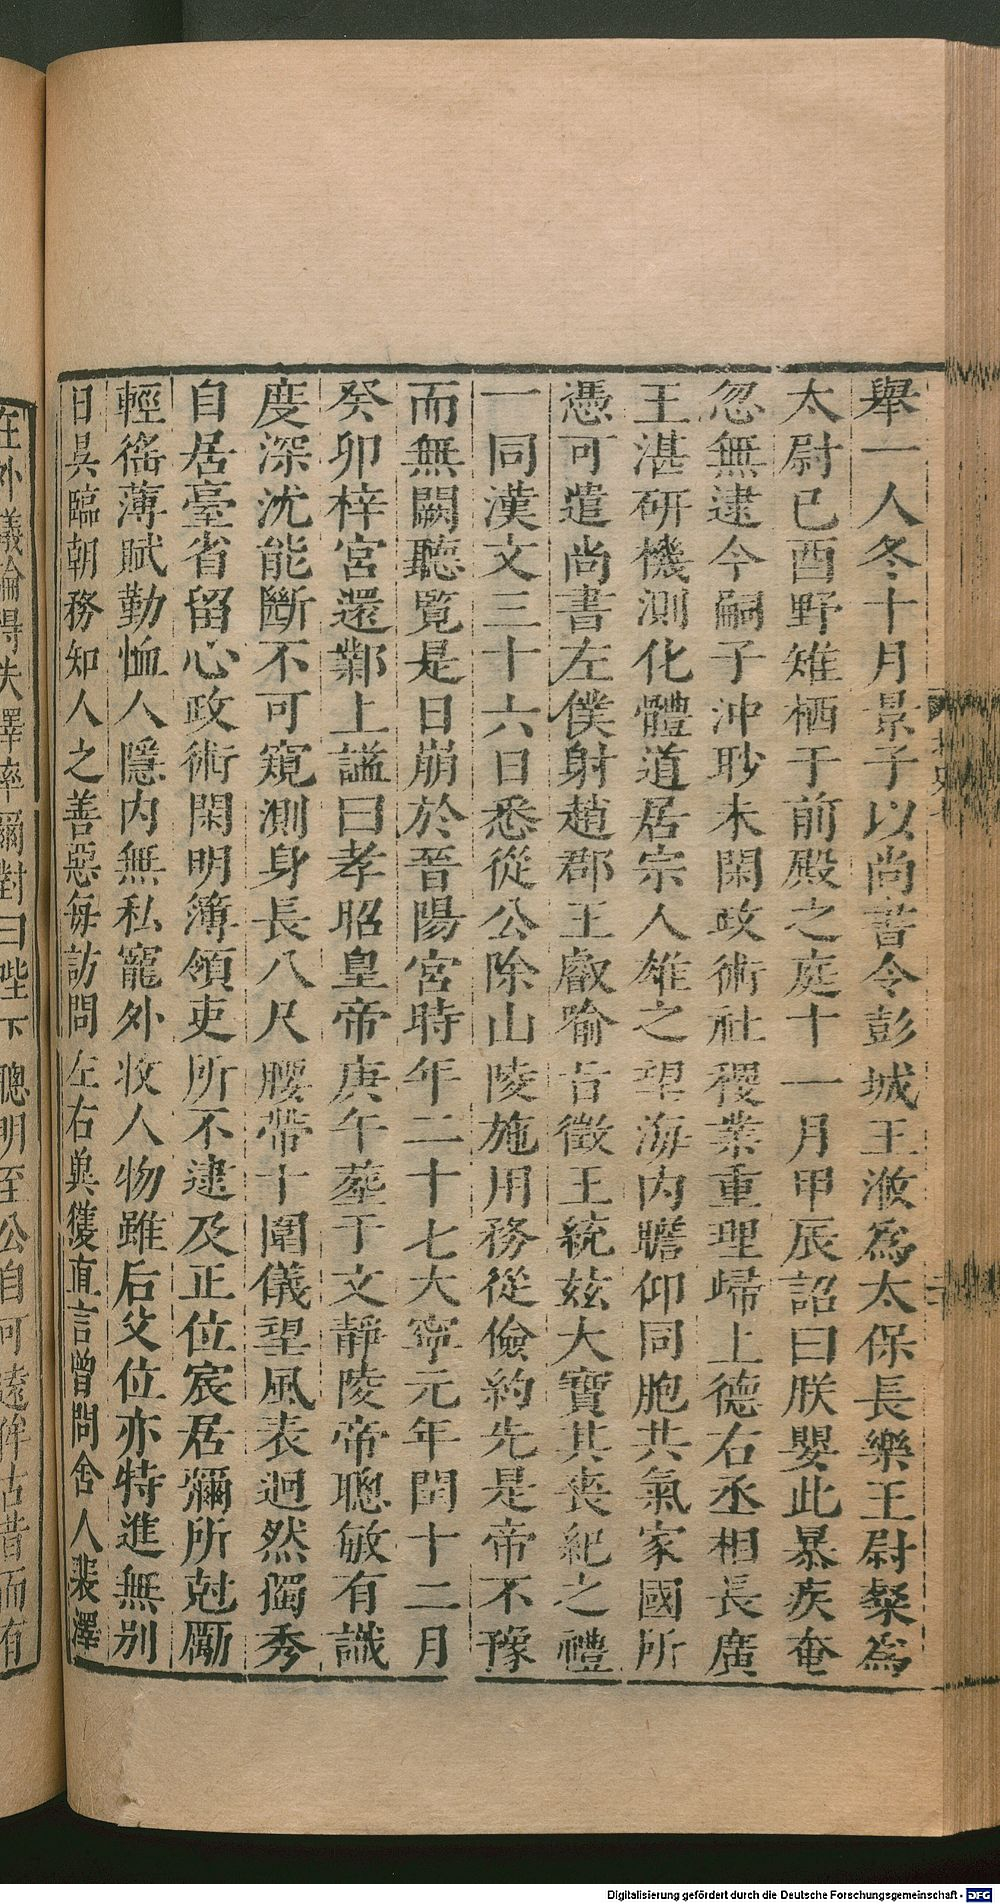 舉一人冬十月景子以尚書令彭城王浟爲太保長樂王尉粲爲
太尉已酉野雉栖于前殿之庭十一月甲辰詔曰朕嬰此暴疾奄
忽無逮今嗣子沖眇未閑政術社稷業重理歸上德右丞相長廣
王湛研機測化體道居宗人雄之望海內瞻仰同胞共氣家國所
憑可遣尚書左僕射趙郡王叡喻旨徵王統兹大寶其喪紀之禮
一同漢文三十六日悉從公除山陵施用務從儉約先是帝不豫
而無闕聽覽是日崩於晉陽宮時年二十七大寧元年閏十二月
癸卯梓宮還鄴上謚曰孝昭皇帝庚午葬于文靜陵帝聰敏有識
度深沈能斷不可窺測身長八尺腰帶十圍儀望風表迥然獨秀
自居臺省留心政術閑明簿領吏所不逮及正位宸居彌所尅勵
輕徭薄賦勤恤人隱內無私寵外收人物雖后父位亦特進無別
日昃臨朝務知人之善惡每訪問左右兾獲直言曾問舍人裴澤
在外議論得失澤率爾對曰陛下聰明至公自可遠侔古昔而有
Digitalisierung gefördert durch die Deutsche Forschungsgemeinschaft - DFG